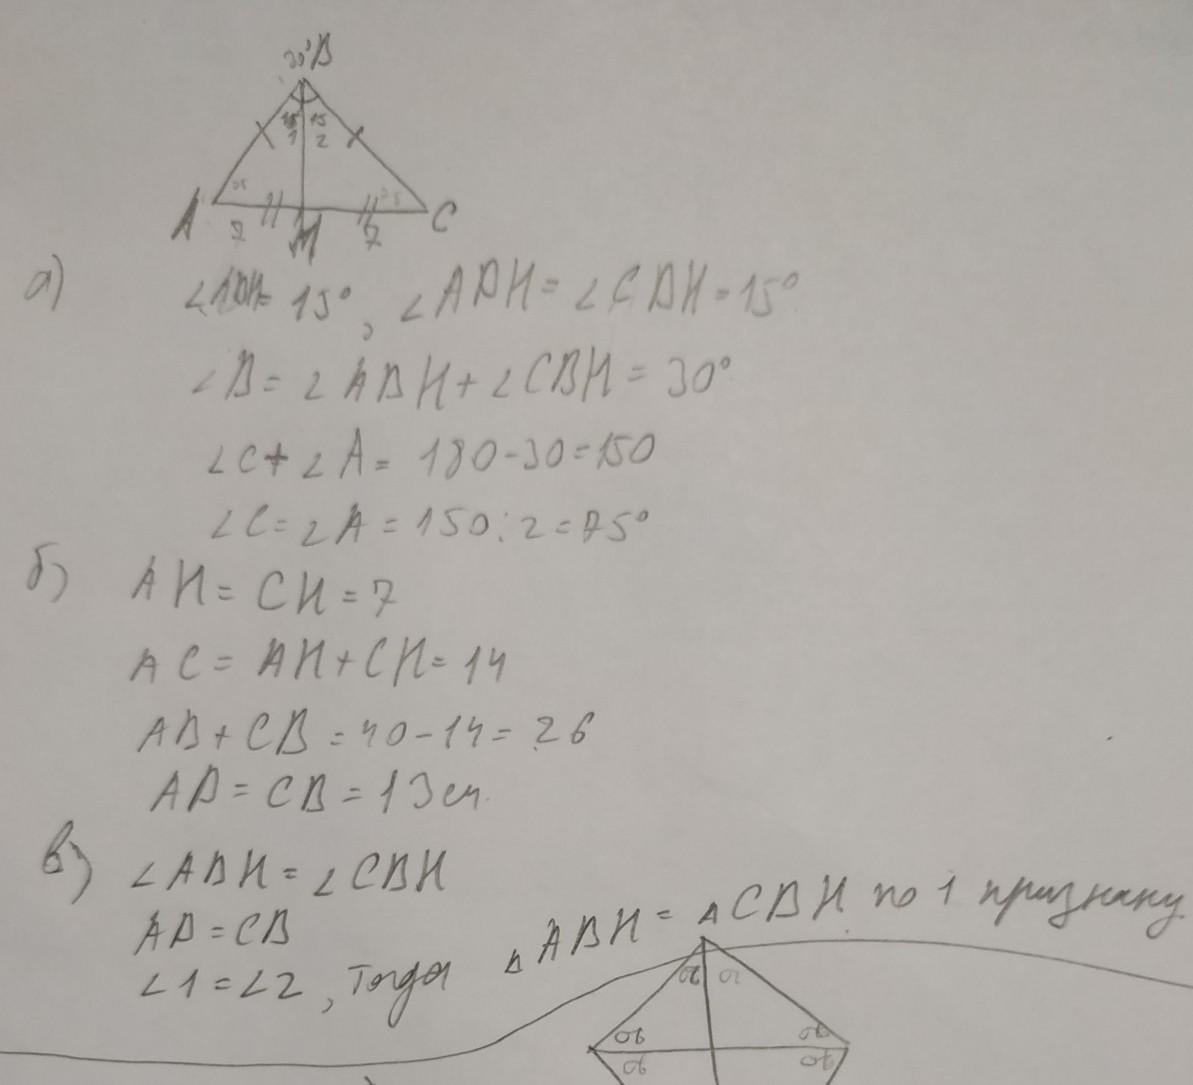 30° B
15 15
1 2
A 7 H 7 C
а) ∠ABH = 15°, ∠ABH = ∠CBH = 15°
∠B = ∠ABH + ∠CBH = 30°
∠C + ∠A = 180 - 30 = 150
∠C = ∠A = 150 : 2 = 75°
б) AH = CH = 7
AC = AH + CH = 14
AB + CB = 40 - 14 = 26
AB = CB = 13 см.
в) ∠ABH = ∠CBH
AB = CB
∠1 = ∠2, Тогда △ABH = △CBH по 1 признаку